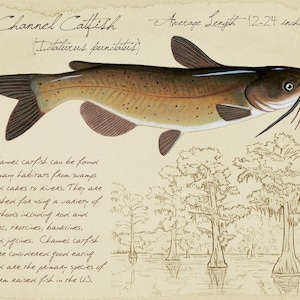 Channel Catfish
(Ictalurus punctatus)
Average Length 12-24 inch
annel catfish can be found
many habitats from swamps
d lakes to rivers. They are
shed for using a variety of
thods including rod and
trotlines, banklines,
d juglines. Channel catfish
re considered good eating
d are the primary species of
rm raised fish in the U.S.